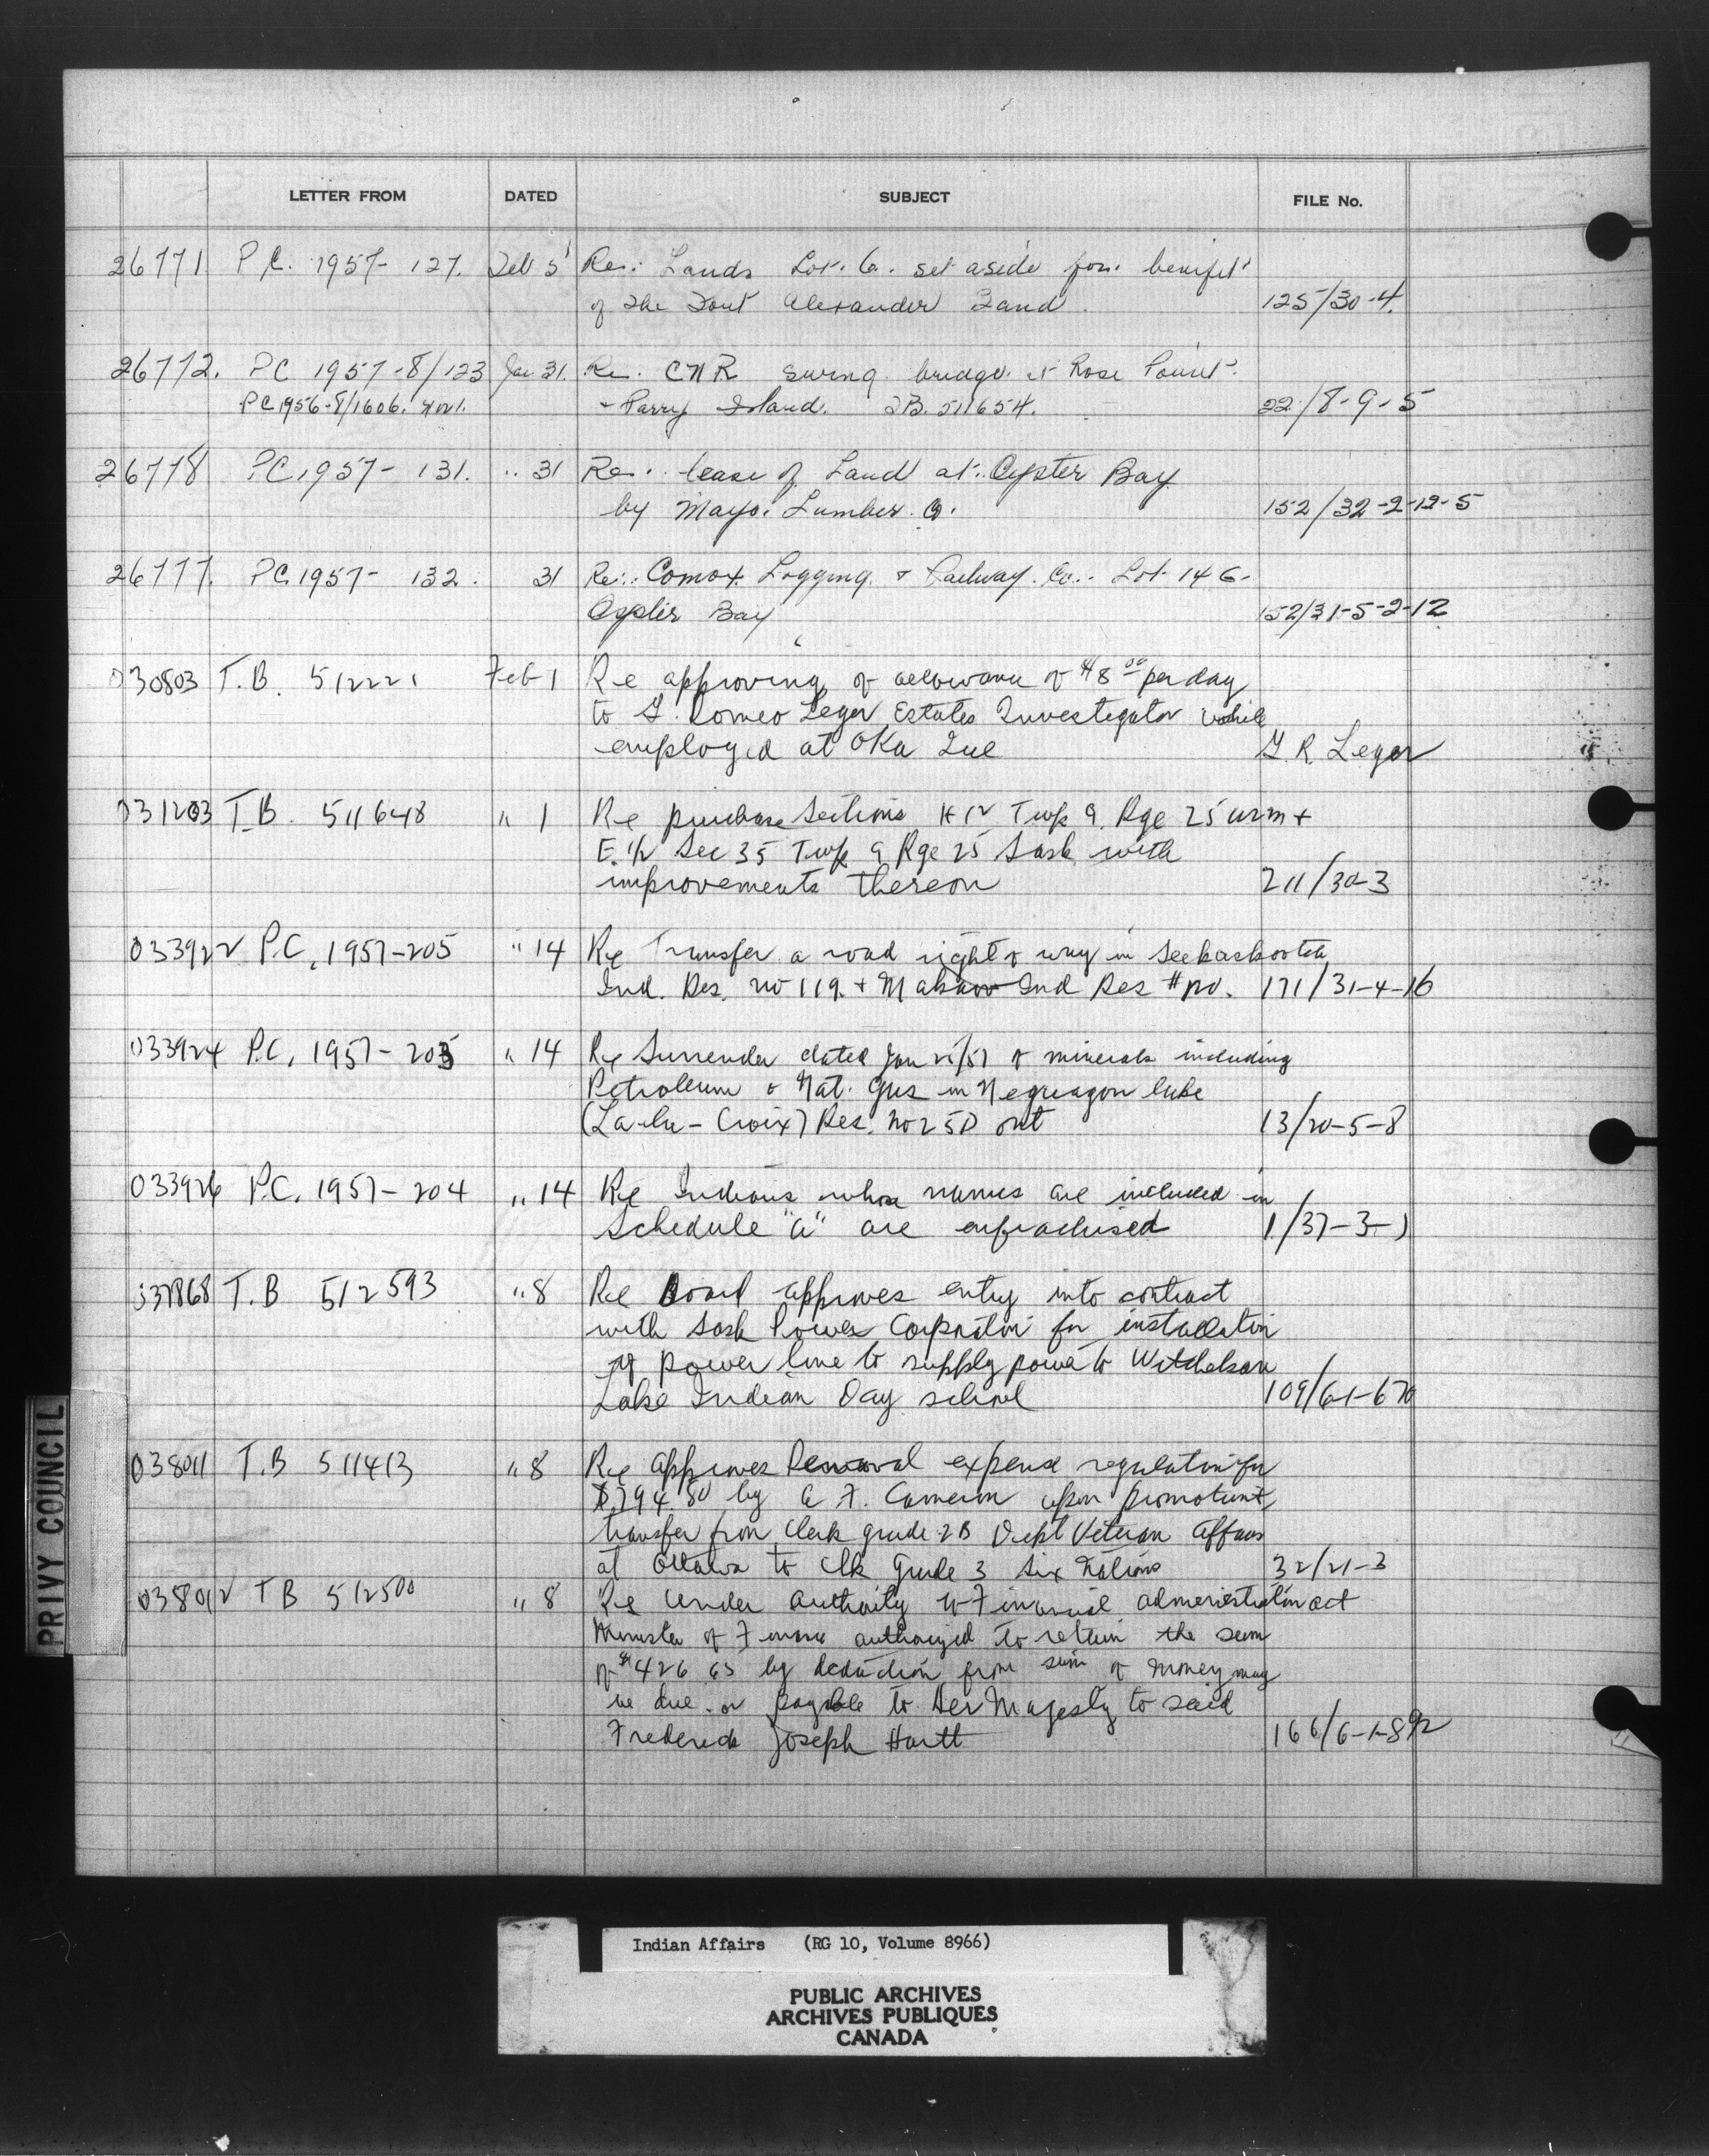 LETTER FROM DATED SUBJECT FILE No.
26771 P.C. 1957-127. Feb 5 Re: Lands Lot. 6. set aside for. benifit
of the Fort Alexander Band. 125/30-4.
26772. PC 1957-8/123 Jan 31. Re. CNR swing bridge at Rose Point
PC1956-8/1606. + Parry Island. TB. 511654. 22/8-9-5
26778 P.C. 1957-131. " 31 Re. lease of Land at Oyster Bay
by Mayo. Lumber. Co. 152/32-2-12-5
26777. PC. 1957-132. 31 Re: Comox Logging + Railway. Co. Lot 146-
Oyster Bay 152/31-5-2-12
030803 T.B. 512221 Feb 1 Re approving of allowance of $8 00 per day
to G. Romeo Leger Estates Investigator while
employed at Oka Que G. R. Leger
031203 T.B. 511648 " 1 Re purchase Sections Twp 9, Rge 25 W2M +
E. 1/2 Sec 35 Twp 9 Rge 25 Sask with
improvements thereon 211/30-3
033922 P.C. 1957-205 " 14 Re Transfer a road right of way in Seekaskootch
Ind. Res. no 119. + Ind Res # 171/31-4-16
033924 P.C. 1957-203 " 14 Re Surrender dated Jan /57 of minerals including
Petroleum & Nat. Gas in Neguagon lake
(Lac-la-Croix) Res. No 25D ont 13/20-5-8
033926 P.C. 1957-204 " 14 Re Indians whose names are included in
Schedule "A" are enfranchised 1/37-3-1
037868 T.B 512593 " 8 Re Board approves entry into contract
with Sask Power Corporation for installation
of power line to supply power to Witchekan
Lake Indian Day school 109/6-1-670
038011 T.B 511413 " 8 Re approves Removal expense regulation for
$794.80 by A F. Cameron upon promotion &
transfer from Clerk grade 2B Dept Veteran Affairs
at Ottawa to Clk Grade 3 Six Nations 32/21-3
038012 TB 512500 " 8 Re Under authority of Financial administration act
Minister of Finance authorized to retain the sum
of $426.65 by deduction from sum of money may
be due or payable to Her Majesty to said
Frederick Joseph Hartt 166/6-1-892
PRIVY COUNCIL
Indian Affairs (RG 10, Volume 8966)
PUBLIC ARCHIVES
ARCHIVES PUBLIQUES
CANADA